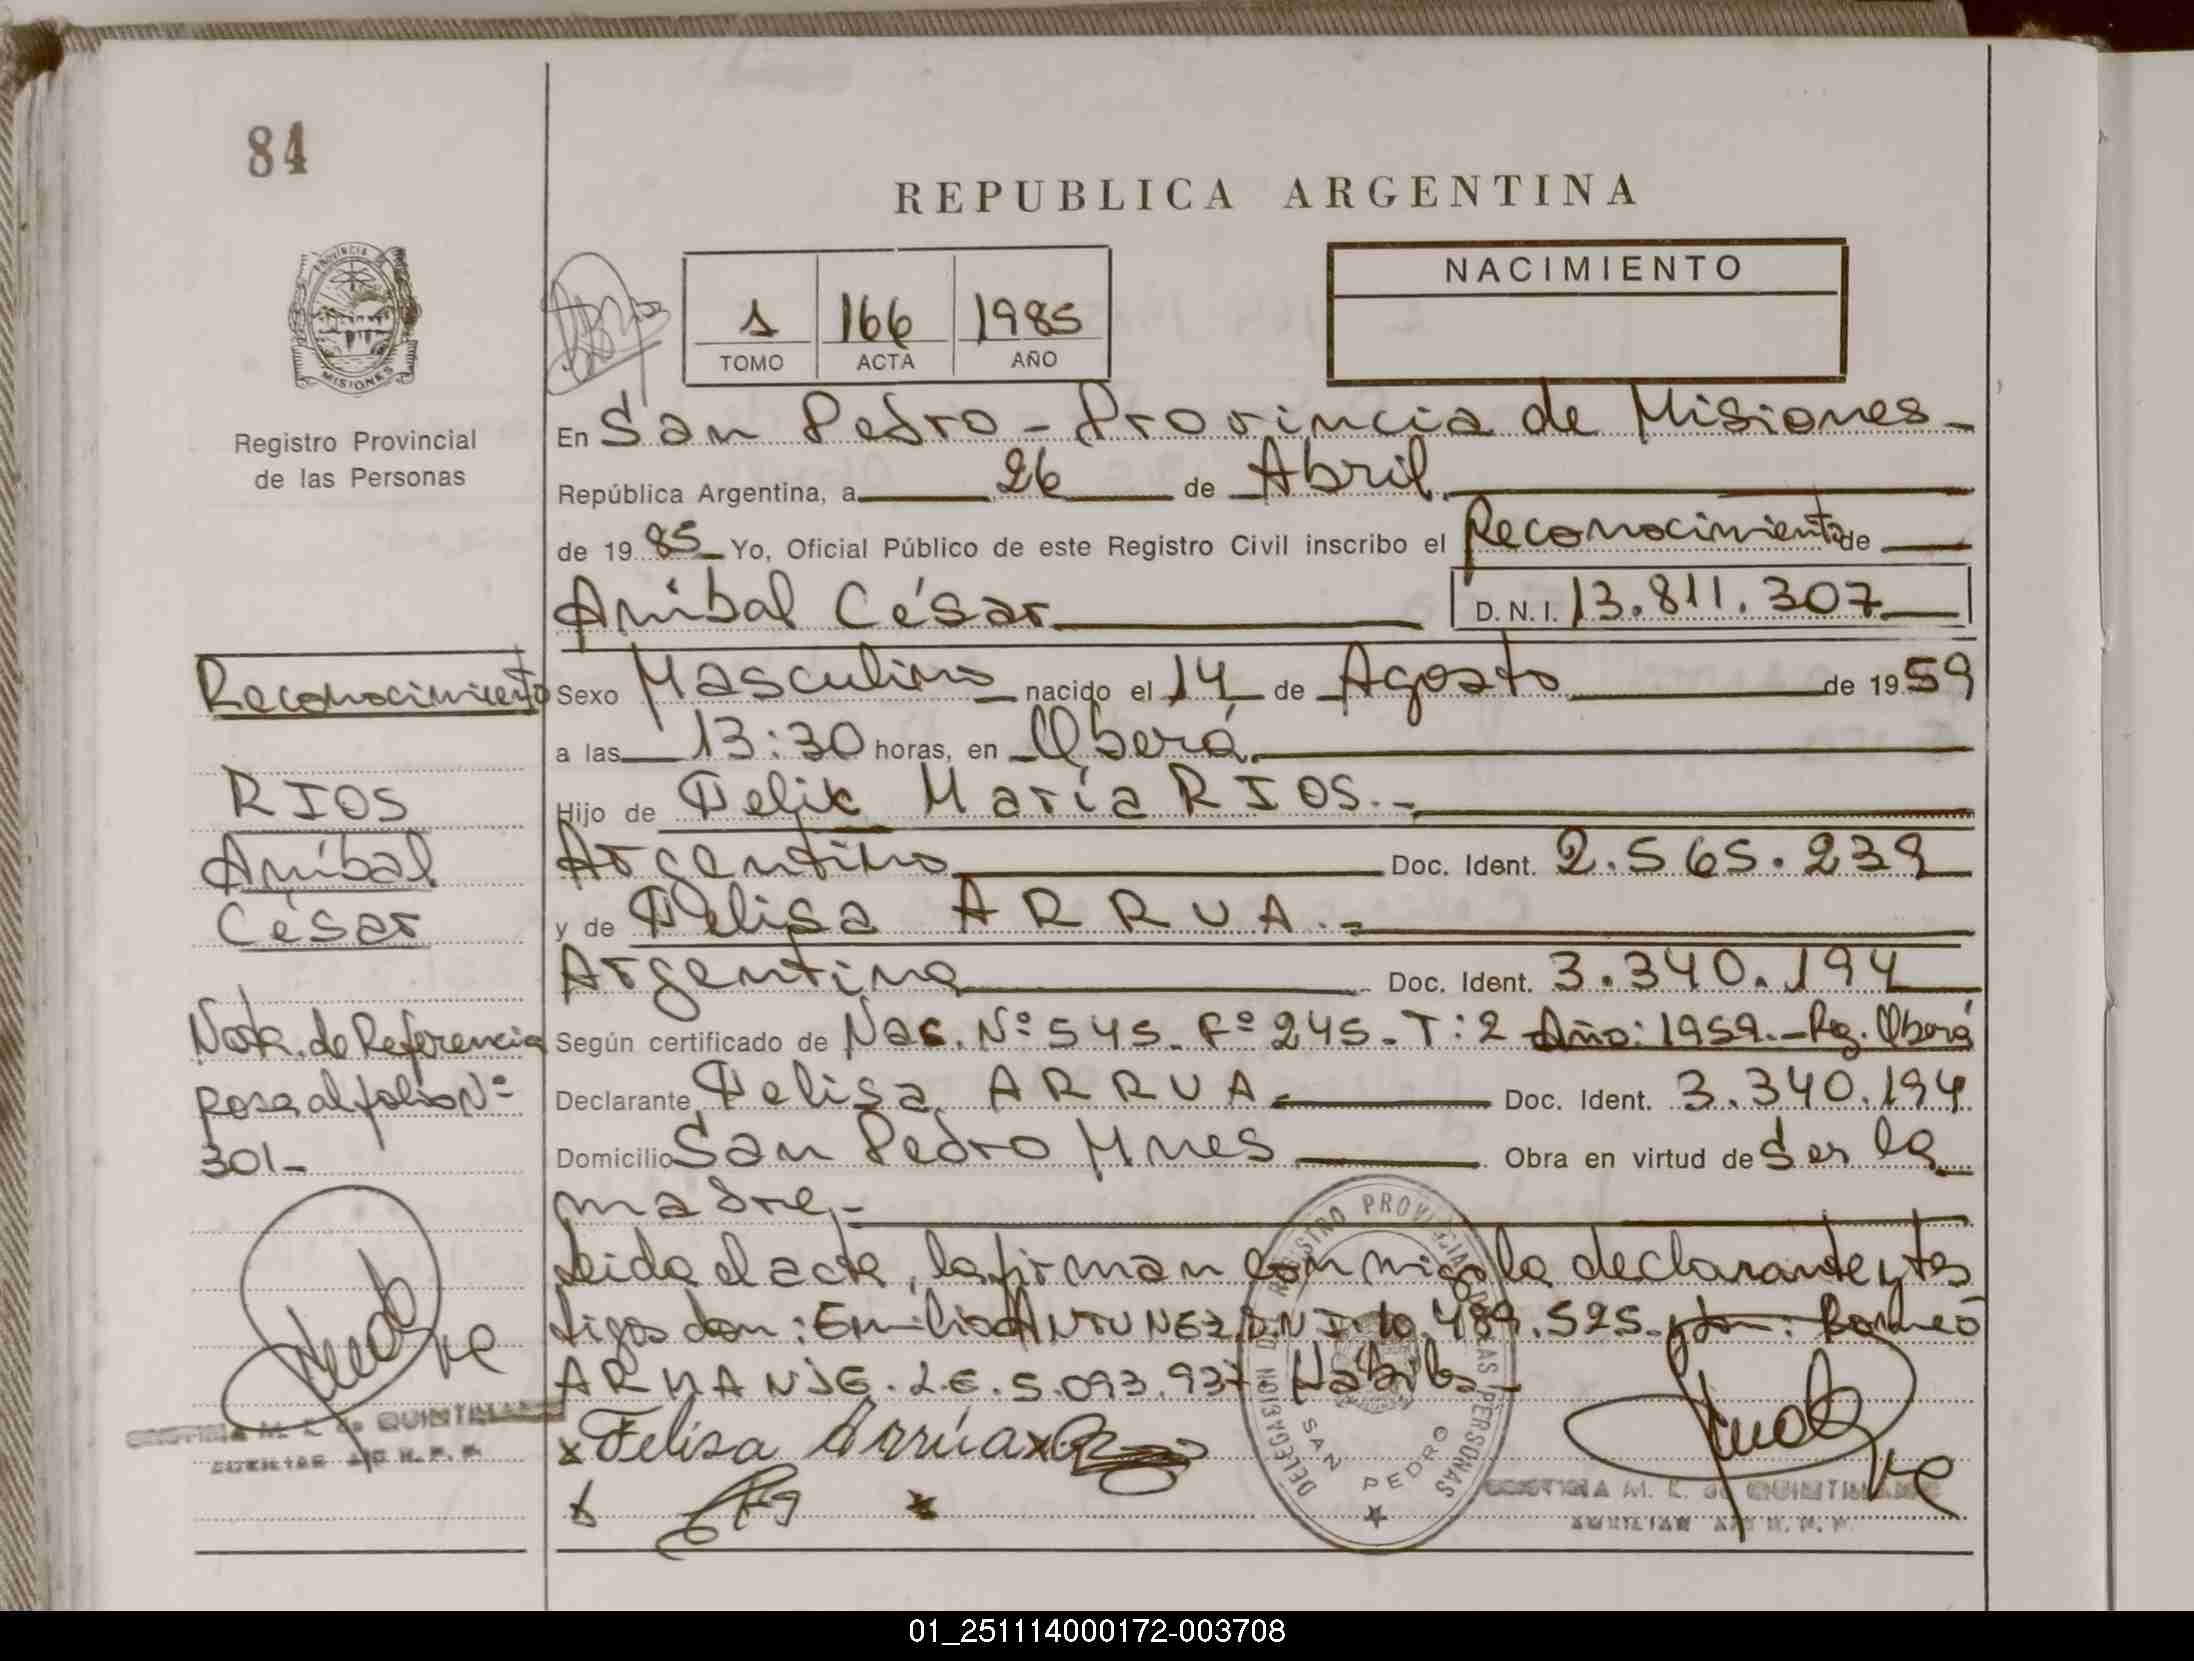 84
REPUBLICA ARGENTINA
PROVINCIA DE
MISIONES
Registro Provincial
de las Personas
1 166 1985
TOMO ACTA AÑO
NACIMIENTO
En San Pedro - Provincia de Misiones -
República Argentina, a 26 de Abril
de 1985 Yo, Oficial Público de este Registro Civil inscribo el Reconocimiento de
Aníbal César D.N.I. 13.811.307
Reconocimiento
Sexo Masculino nacido el 14 de Agosto de 1959
a las 13:30 horas, en Oberá
RIOS
Aníbal
César
Hijo de Felix María RIOS.-
Argentino Doc. Ident. 2.565.239
y de Felisa ARRUA.-
Argentina Doc. Ident. 3.340.194
Nota de Referencia
pasa al folio Nº
301-
Según certificado de Nac. Nº 545. Fº 245. T: 2 Año: 1959.- Reg. Oberá
Declarante Felisa ARRUA Doc. Ident. 3.340.194
Domicilio San Pedro Mnes Obra en virtud de Ser la
madre.-
Leida el acta, la firman conmigo la declarante y tes
tigos don: Emilio ANTUNEZ D.N.I. 10.489.525.
ARMANJE. L.E. 5.093.937
x Felisa Arrúa x
DELEGACION DEL REGISTRO PROVINCIAL DE LAS PERSONAS
SAN PEDRO
CRISTINA M. L. de QUINTIN
AUXILIAR
CRISTINA M. L. de QUINTIN
AUXILIAR
01_251114000172-003708